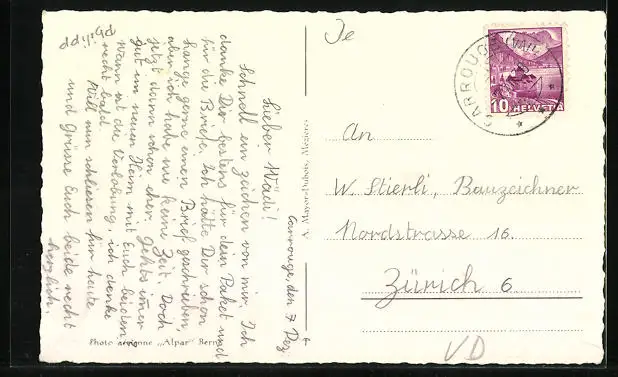 Carrouge, den 7 Dez.
Lieber Wädi!
Schnell ein zeichen von mir. Ich
danke Dir bestens für dein Paket und
für die Briefe. Ich hätte Dir schon
lange gerne einen Brief geschrieben,
aber ich habe nie keine Zeit. Doch
jetzt dann schon eher. Gehts immer
gut im neuen Heim mit Euch beiden.
Wann ist die Verlobung, ich denke
recht bald.
Will nun schliesen für heute
und Grüsse Euch beide recht
herzlich.
Philipp
Je
CARROUGE (VAUD)
10 HELVETIA
An
W. Stierli, Bauzeichner
Nordstrasse 16.
Zürich 6
VD
A. Mayor-Dubois, Mézières
Photo avionne „Alpar" Bern